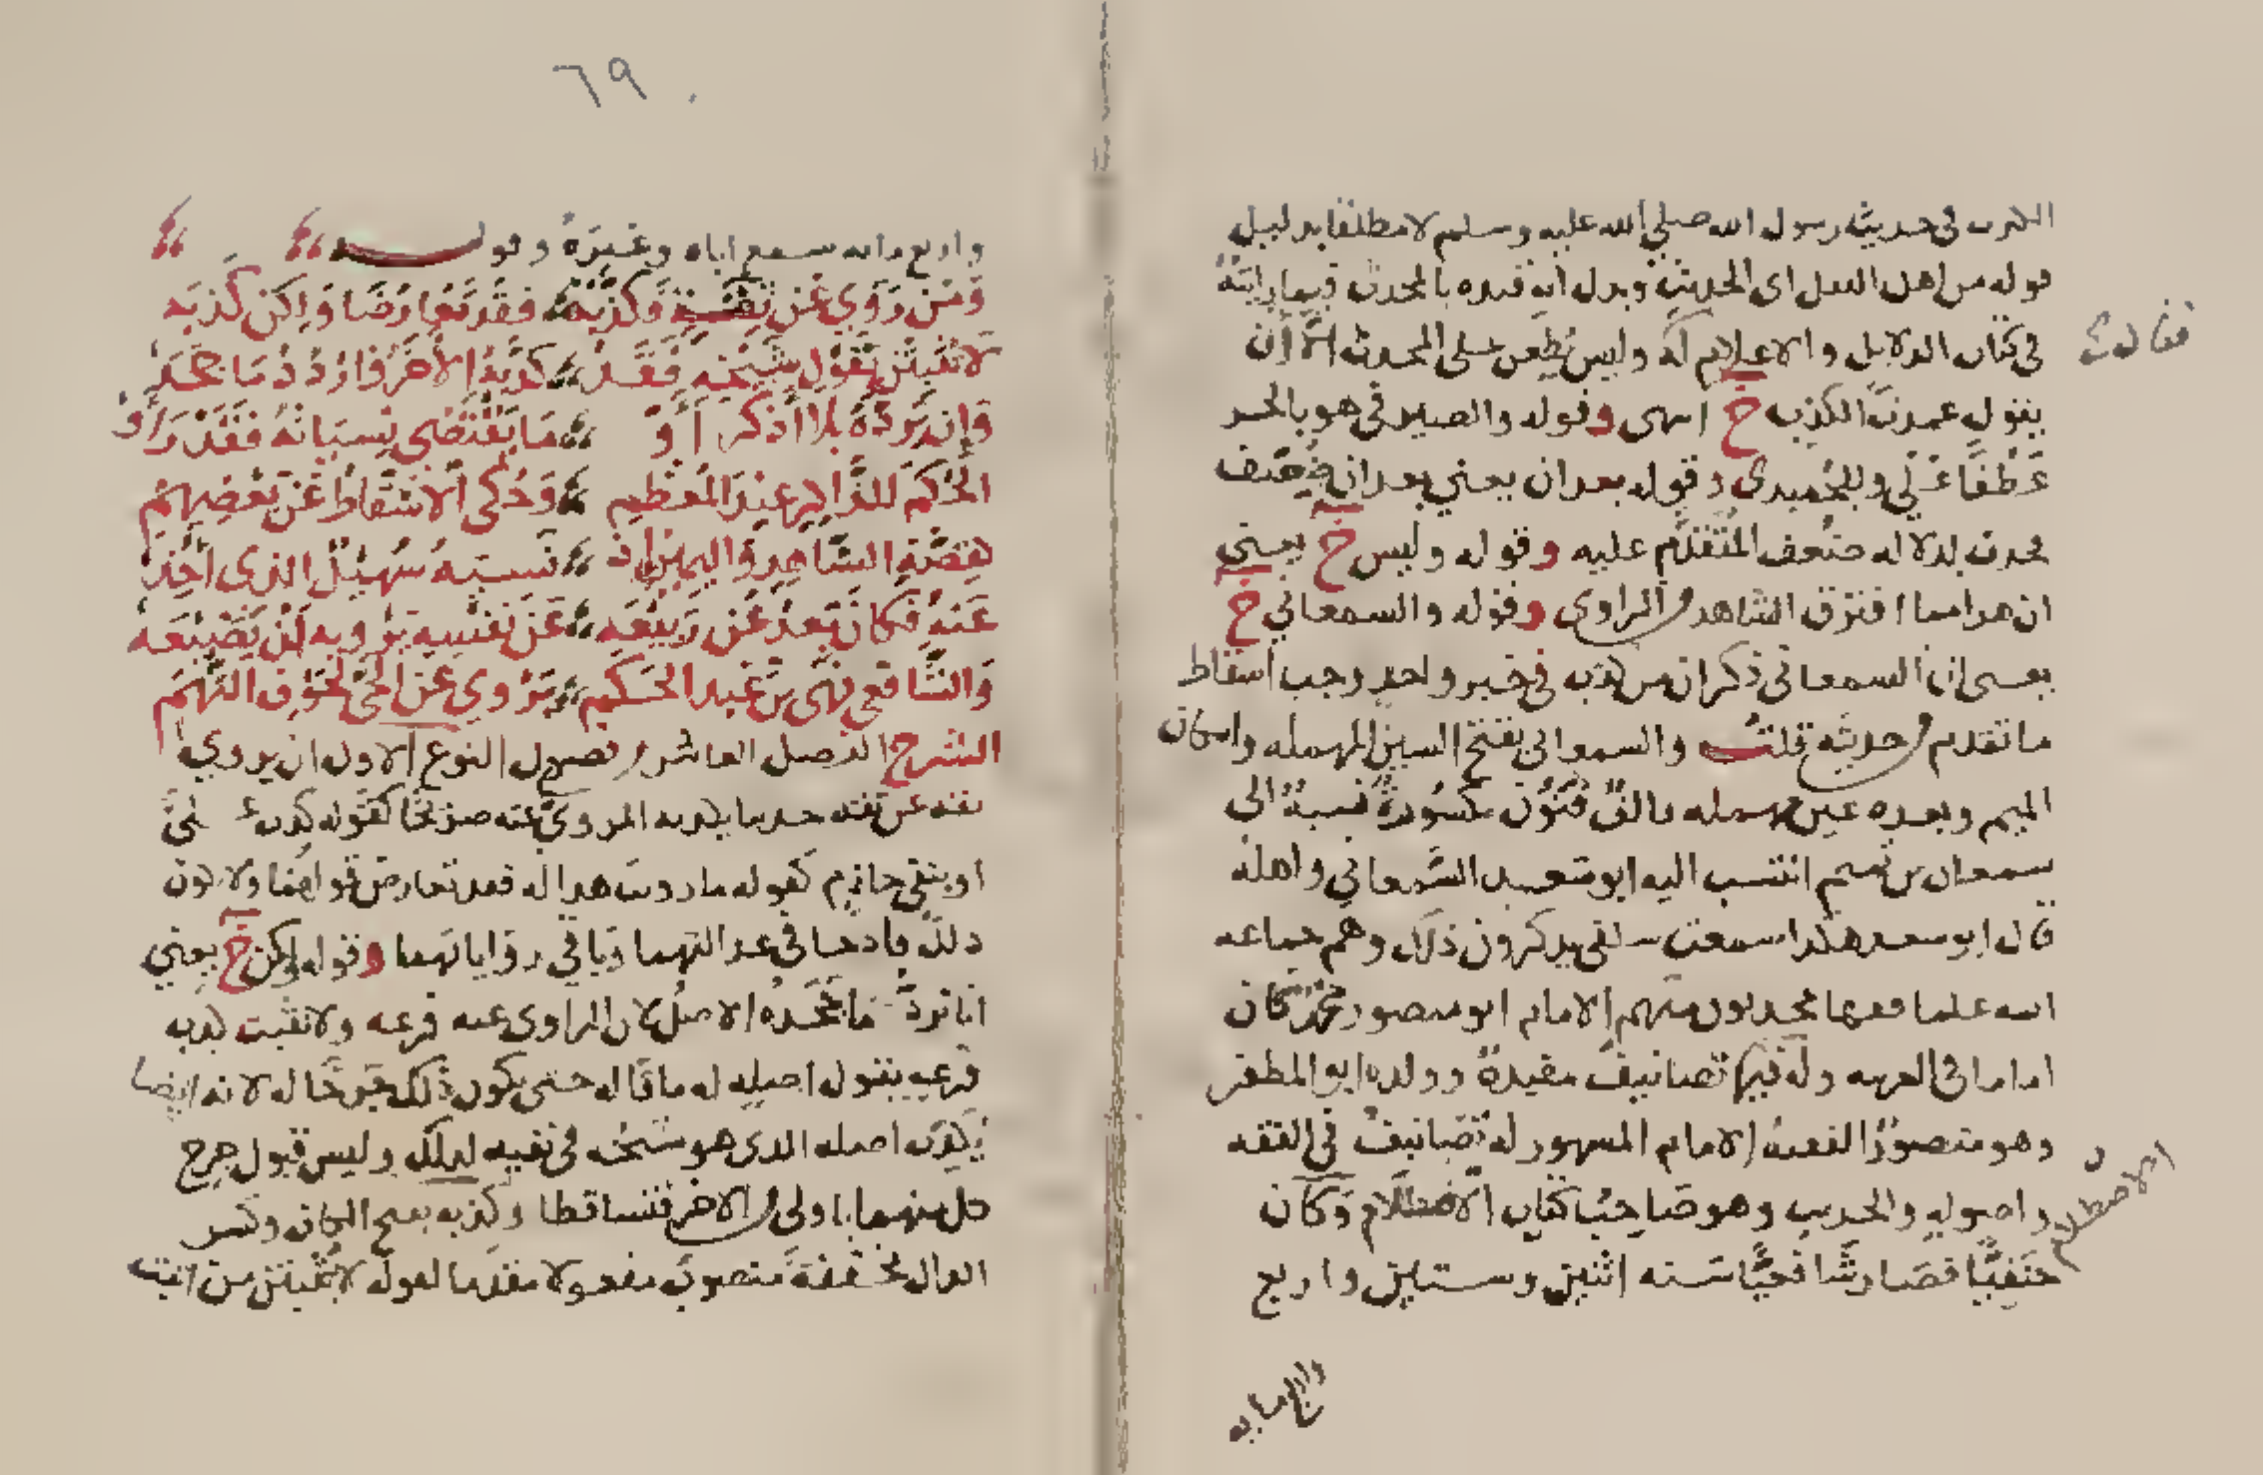 الكذب في حديث رسول الله صلى الله عليه وسلم لا مطلقا بدليل
قوله من اهل النقل اى الحديث ويدل انه قيده بالمحدث فيما رايته
في كتاب الدلايل والاعلام له وليس يطعن على المحدث الا ان
فقال ث
يقول عمدت الكذب خ انتهى وقوله والصيرفي هو بالجر
عطفا على وللحميدى وقوله بعد ان يعني بعد ان ضعف
محدث لدلالة ضعف المتقدم عليه وقوله وليس خ يعني
ان هذا مما افترق الشاهد والراوي وقوله والسمعاني خ
يعني ان السمعاني ذكر ان من كذب في خبر واحد وجب اسقاط
ما تقدم من حديثه قلت والسمعاني بفتح السين المهملة واسكان
الميم وبعده عين مهملة فالف فنون مكسورة نسبة الى
سمعان من تميم انتسب اليه ابو سعيد السمعاني واهله
قال ابو سعد هكذا سمعت سلفي يذكرون ذلك وهم جماعه
ائمه علما فقها محدثون منهم الامام ابو منصور محمد كان
اماما في العربيه وله فيها تصانيف مفيدة وولده ابو المظفر
وهو منصور الفقيه الامام المشهور له تصانيف في الفقه
واصوله والحديث وهو صاحب كتاب الاصطلام وكان
الاصطلام ن
حنفيا فصار شافعيا سنه اثنين وستين واربع
واربع مايه
٦٩
واربع مايه سمع اباه وغيره وقول
ومن روى عن ثقة فكذبه فقد تعارضا ولكن كذبه
لا تثبتن بقول شيخه فقد كذبه الاخر فاردد ما جحد
وان يرده بلا اذكر او ما يقتضي نسيانه فقد راوا
الحكم للذاكر عند المعظم وحكي الاسقاط عن بعضهم
كقصة الشاهد واليمين اذ نسيه سهيل الذى اخذ
عنه فكان بعد عن ربيعه عن نفسه يرويه لن يضيعه
والشافعي نهى بن عبد الحكم يروي عن الحي لخوف التهم
الشرح الفصل العاشر وفصول النوع الاول ان يروي
ثقه عن ثقه حديثا يكذبه المروي عنه صريحا كقوله كذب علي
او بنفي جازم كقوله ما رويت هذا له فقد تعارض قولهما ولا يكون
ذلك قادحا في عدالتهما وباقي رواياتهما وقوله ولكن خ يعني
انا نرد ما جحده الاصل لان الراوى عنه فرعه ولا نثبت كذب
فرعه بقول اصله له ما قاله حتى يكون ذلك جرحا له لانه ايضا
يكذب اصله الذى هو شيخه في نفيه لذلك وليس قبول جرح
كل منهما باولى من الاخر فتساقطا وكذبه بفتح الكاف وكسر
الذال مخففة منصوب مفعولا مقدما لقوله لا تثبتن من اثبت